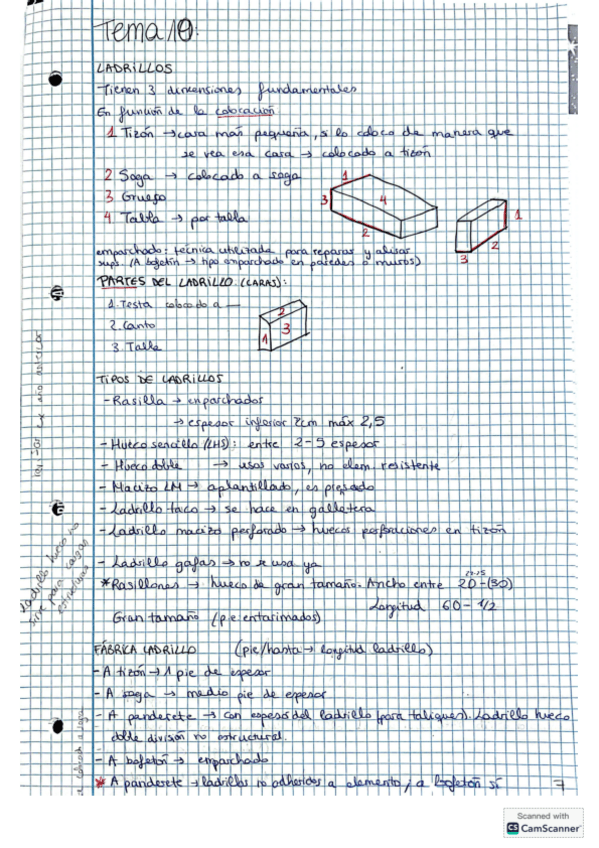 Tema 10:
LADRILLOS
Tienen 3 dimensiones fundamentales
En función de la colocación
1 Tizón → cara más pequeña, si lo coloco de manera que
se vea esa cara → colocado a tizón
2 Soga → colocado a soga
3 Grueso
4 Tabla → por talla
1
3
4
2
1
2
3
emparchado: técnica utilizada para reparar y alisar
sups. (A bofetón → tipo emparchado en paredes o muros)
PARTES DEL LADRILLO (CARAS):
1. Testa colocado a —
2. Canto
3. Talla
2
1
3
TIPOS DE LADRILLOS
- Rasilla → enparchados
→ espesor inferior 2cm máx 2,5
- Hueco sencillo (LHS): entre 2-5 espesor
- Hueco doble → usos varios, no elem. resistente
- Macizo LM → aplantillado, es prensado
- Ladrillo taco → se hace en galletera
- Ladrillo macizo perforado → huecos perforaciones en tizón
- Ladrillo gafas → no se usa ya
* Rasillones → hueco de gran tamaño. Ancho entre 20-(30)
Longitud 60-1/2
Gran tamaño (p.e. entarimados)
Ladrillo hueco no
sirve para cargas
estructuras
FÁBRICA LADRILLO (pie/hasta → longitud ladrillo)
- A tizón → 1 pie de espesor
- A soga → medio pie de espesor
- A panderete → con espesor del ladrillo (para tabiques). Ladrillo hueco
doble división no estructural.
- A bofetón → emparchado
* A panderete → ladrillos no adheridos a elemento, a bofetón sí
7
Scanned with
CS CamScanner